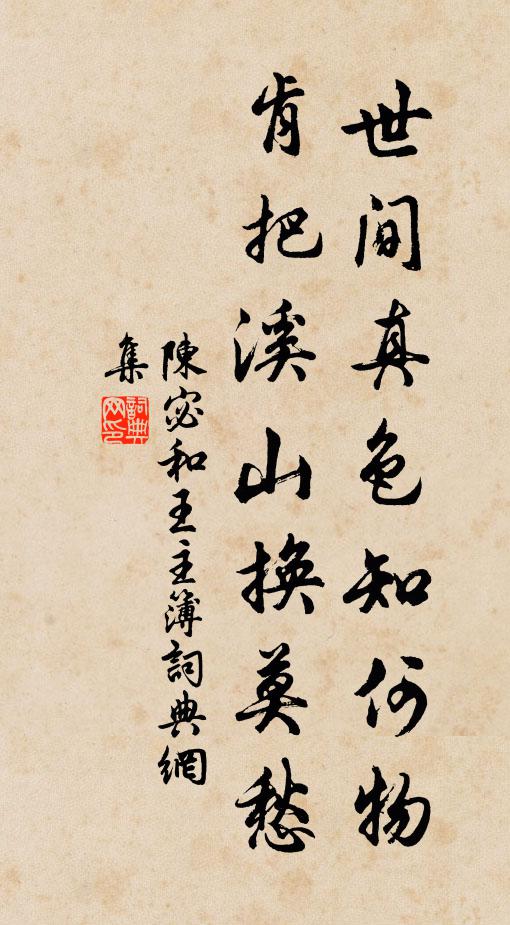 世間真色知何物
肯把溪山換莫愁
陳宓和王主簿詞典網
集
詞典网印